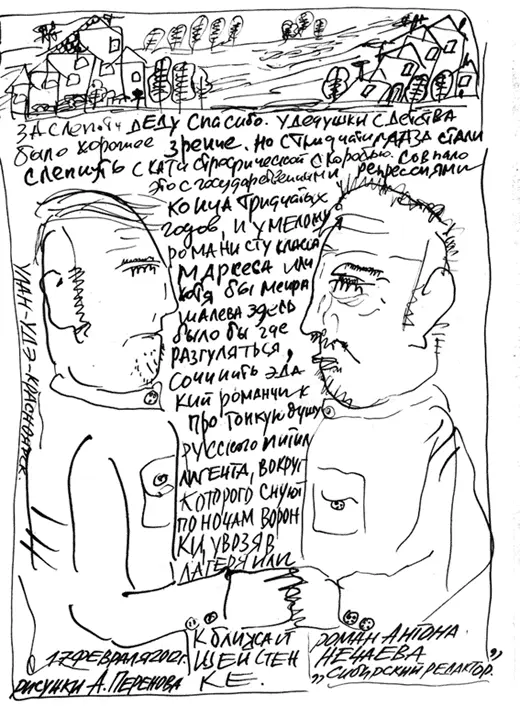 ЗА СЛЕПОТУ ДЕДУ СПАСИБО. У ДЕДУШКИ С ДЕТСТВА
БЫЛО ХОРОШЕЕ ЗРЕНИЕ. НО С ТРИДЦАТИ ГЛАЗА СТАЛИ
СЛЕПНУТЬ С КАТАСТРОФИЧЕСКОЙ СКОРОСТЬЮ. СОВПАЛО
ЭТО С ГОСУДАРСТВЕННЫМИ РЕПРЕССИЯМИ
КОНЦА ТРИДЦАТЫХ
ГОДОВ, И УМЕЛОМУ
РОМАНИСТУ КЛАССА
МАРКЕСА ИЛИ
ХОТЯ БЫ МЕИРА
ШАЛЕВА ЗДЕСЬ
БЫЛО БЫ ГДЕ
РАЗГУЛЯТЬСЯ,
СОЧИНИТЬ ЭДА
КИЙ РОМАНЧИК
ПРО ТОНКУЮ ДУШУ
РУССКОГО ИНТИЛ
ЛИГЕНТА, ВОКРУГ
КОТОРОГО СНУЮТ
ПО НОЧАМ ВОРОН
КИ, УВОЗЯ В
ЛАГЕРЯ ИЛИ
К БЛИЖАЙ
ШЕЙ СТЕН
КЕ.
УЛАН-УДЭ-КРАСНОЯРСК.
17 ФЕВРАЛЯ
РИСУНКИ А.
РОМАН АНТОНА
НЕЧАЕВА
„СИБИРСКИЙ РЕДАКТОР."